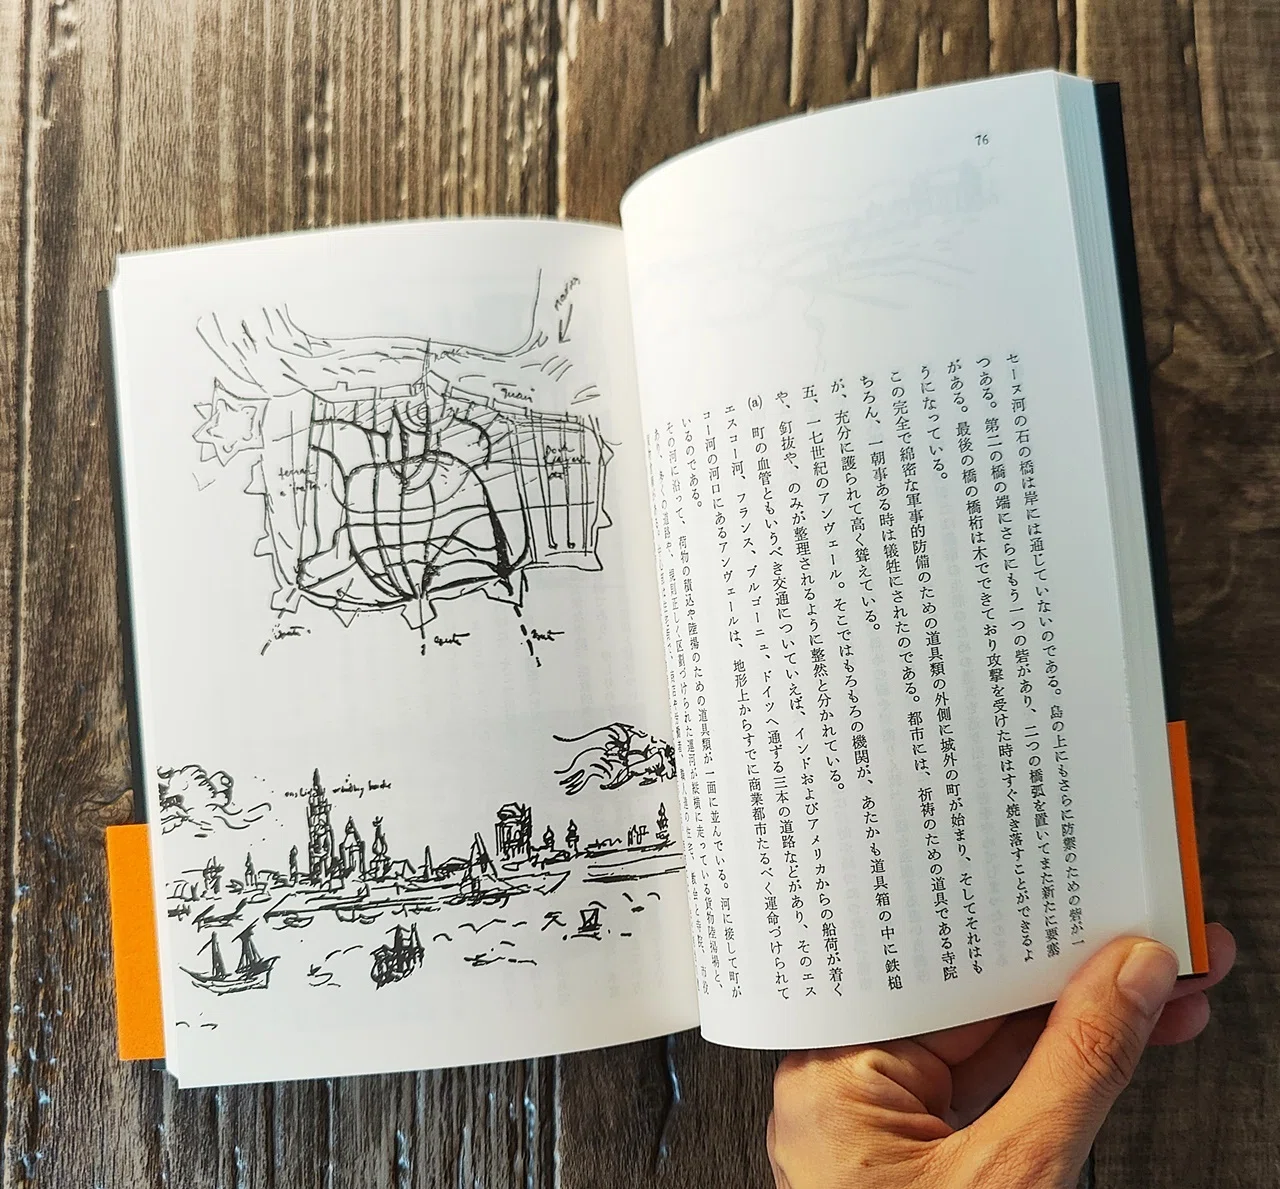 76
セーヌ河の石の橋は岸には通じていないのである。島の上にもさらに防禦のための砦が一
つある。第二の橋の端にさらにもう一つの砦があり、二つの橋弧を置いてまた新たに要塞
がある。最後の橋の橋桁は木でできており攻撃を受けた時はすぐ焼き落すことができるよ
うになっている。
この完全で綿密な軍事的防備のための道具類の外側に城外の町が始まり、そしてそれはも
ちろん、一朝事ある時は犠牲にされたのである。都市には、祈祷のための道具である寺院
が、充分に護られて高く聳えている。
五、一七世紀のアンヴェール。そこではもろもろの機関が、あたかも道具箱の中に鉄槌
や、釘抜や、のみが整理されるように整然と分かれている。
(a) 町の血管ともいうべき交通についていえば、インドおよびアメリカからの船荷が着く
エスコー河、フランス、ブルゴーニュ、ドイツへ通ずる三本の道路などがあり、そのエス
コー河の河口にあるアンヴェールは、地形上からすでに商業都市たるべく運命づけられて
いるのである。
その河に沿って、荷物の積込や陸揚のための道具類が一面に並んでいる。河に接して町が
あり、多くの道路や、規則正しく区劃づけられた運河が縦横に走っている貨物陸揚場と、
Quai